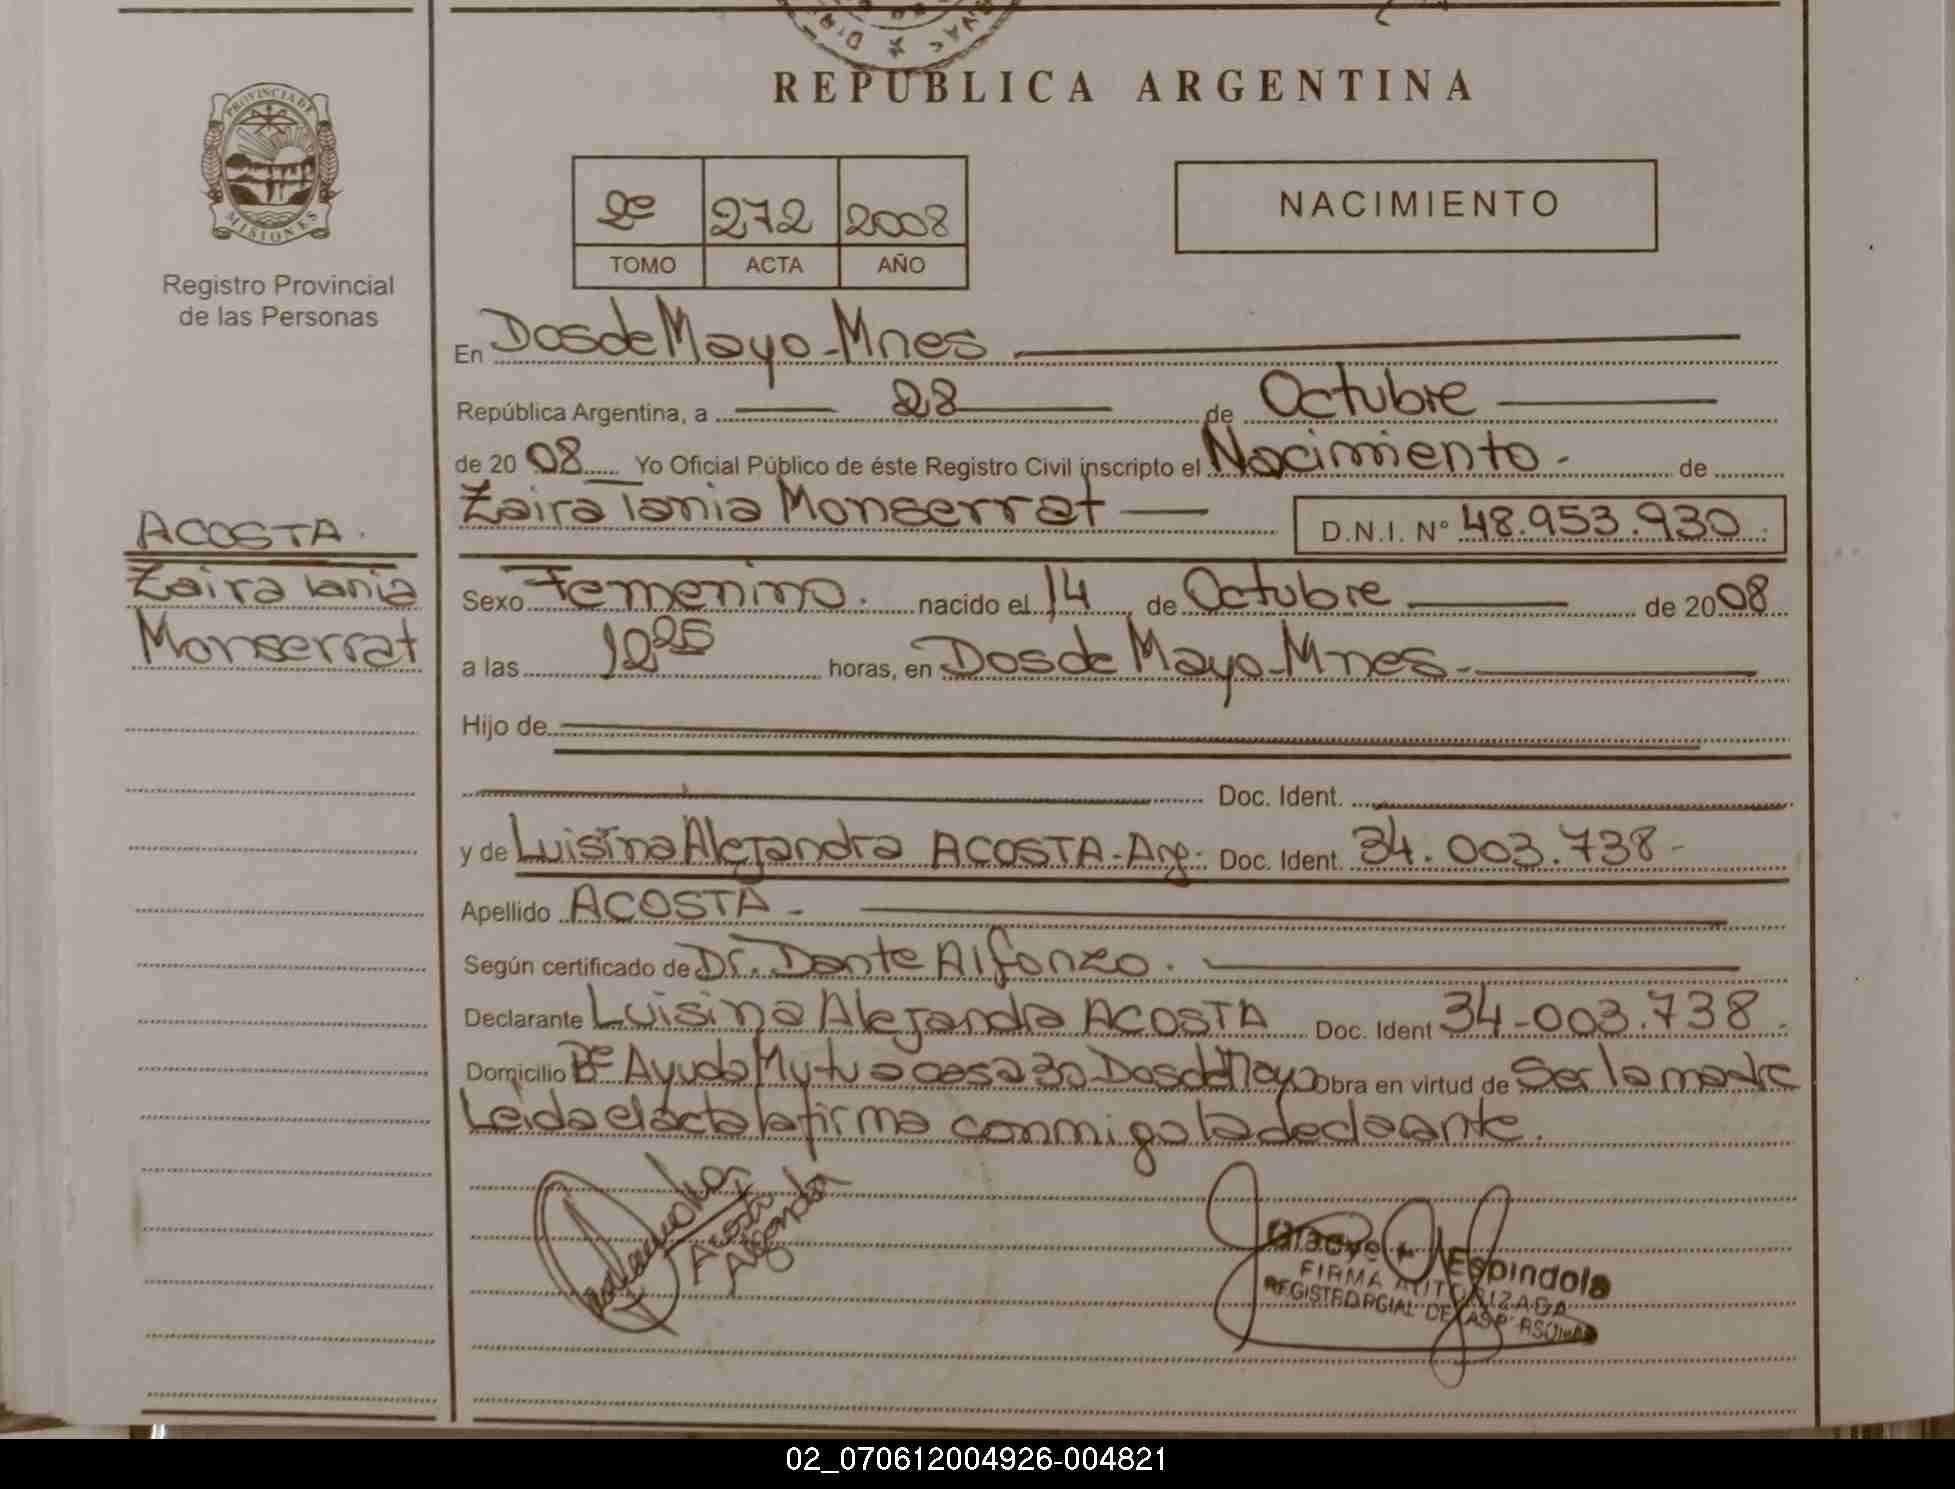 REPUBLICA ARGENTINA
PROVINCIA DE
MISIONES
Registro Provincial
de las Personas
2º 272 2008
TOMO ACTA AÑO
NACIMIENTO
En Dos de Mayo - Mnes
República Argentina, a 28 de Octubre
de 20 08 Yo Oficial Público de éste Registro Civil inscripto el Nacimiento - de
Zaira Tania Monserrat D.N.I. Nº 48.953.930.
ACOSTA.
Zaira Tania
Monserrat
Sexo Femenino. nacido el 14 de Octubre de 20 08
a las 12 25 horas, en Dos de Mayo - Mnes -
Hijo de
Doc. Ident.
y de Luisina Alejandra ACOSTA - Arg. Doc. Ident. 34.003.738 -
Apellido ACOSTA -
Según certificado de Dr. Dante Alfonzo.
Declarante Luisina Alejandra ACOSTA Doc. Ident 34-003.738 -
Domicilio Bº Ayuda Mutua casa 30 - Dos de Mayo Obra en virtud de Ser la madre
Leida el acta la firma conmigo la declarante.
Acosta
Espindola
FIRMA AUTORIZADA
REGISTRO PCIAL DE LAS PERSONAS
02_070612004926-004821